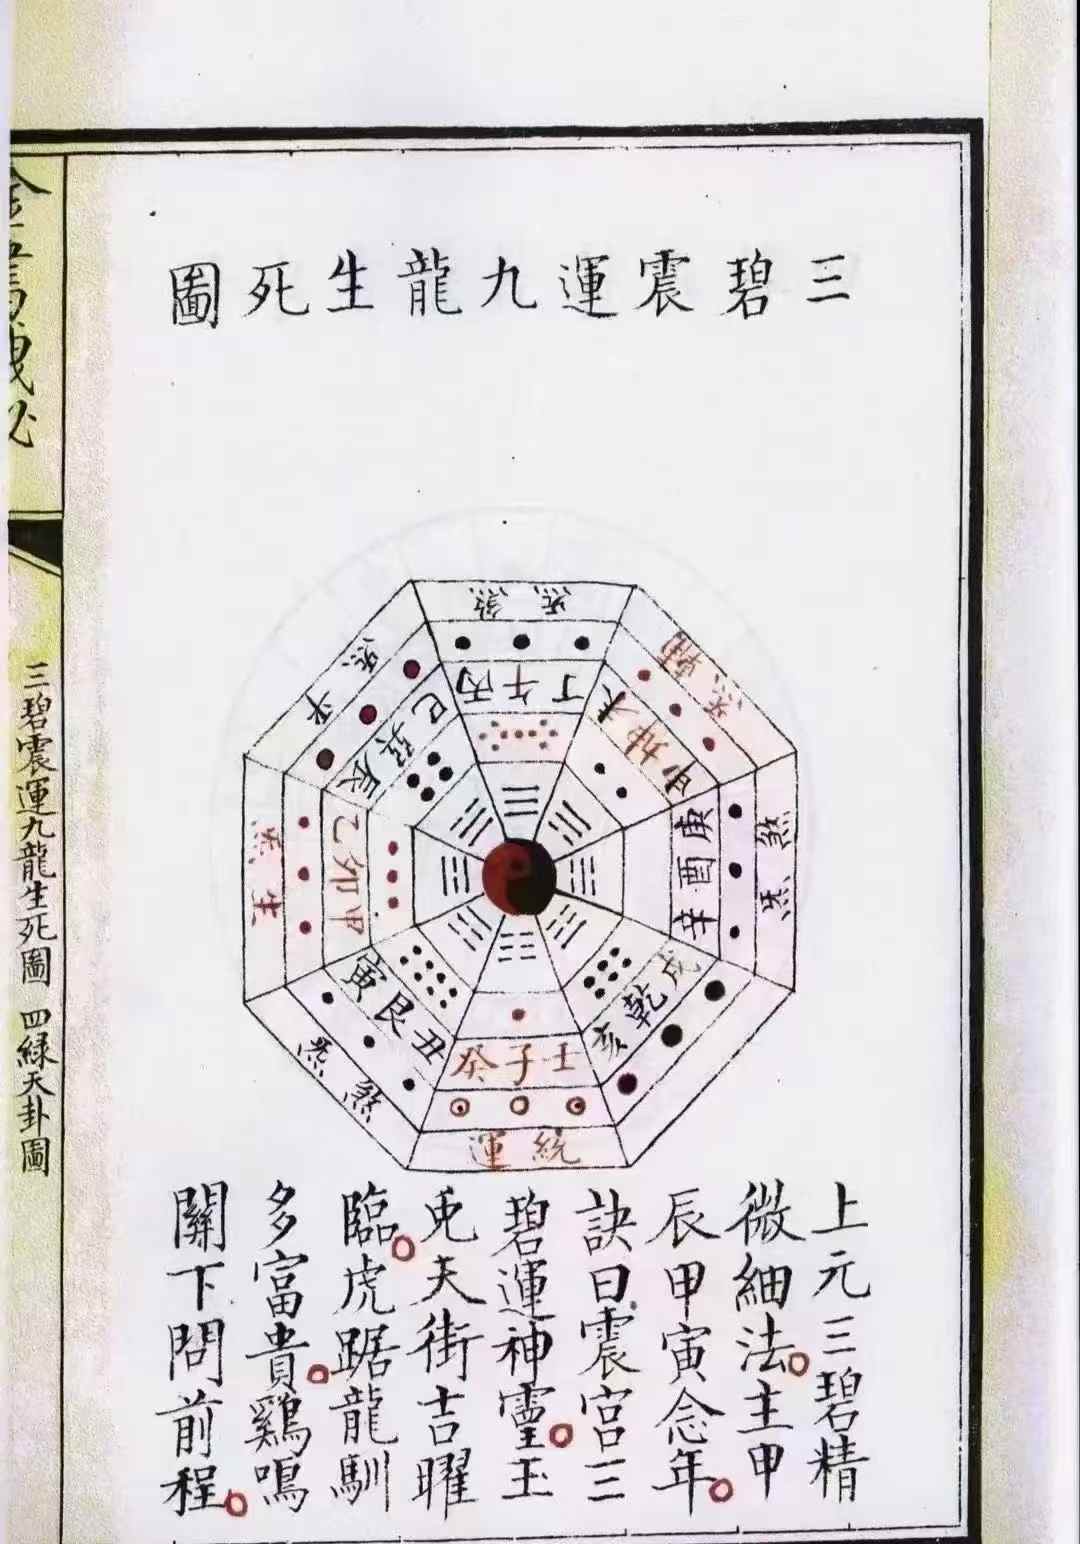 三碧震運九龍生死圖
煞炁
輔炁
煞炁
統運
炁煞
炁生
炁平
丙午丁
未坤申
庚酉辛
戌乾亥
壬子癸
丑艮寅
甲卯乙
辰巽巳
上元三碧精
微細法主甲
辰甲寅念年
訣曰震宮三
碧運神靈玉
兎天街吉曜
臨虎踞龍馴
多富貴鷄鳴
關下問前程
三碧震運九龍生死圖 四綠天卦圖